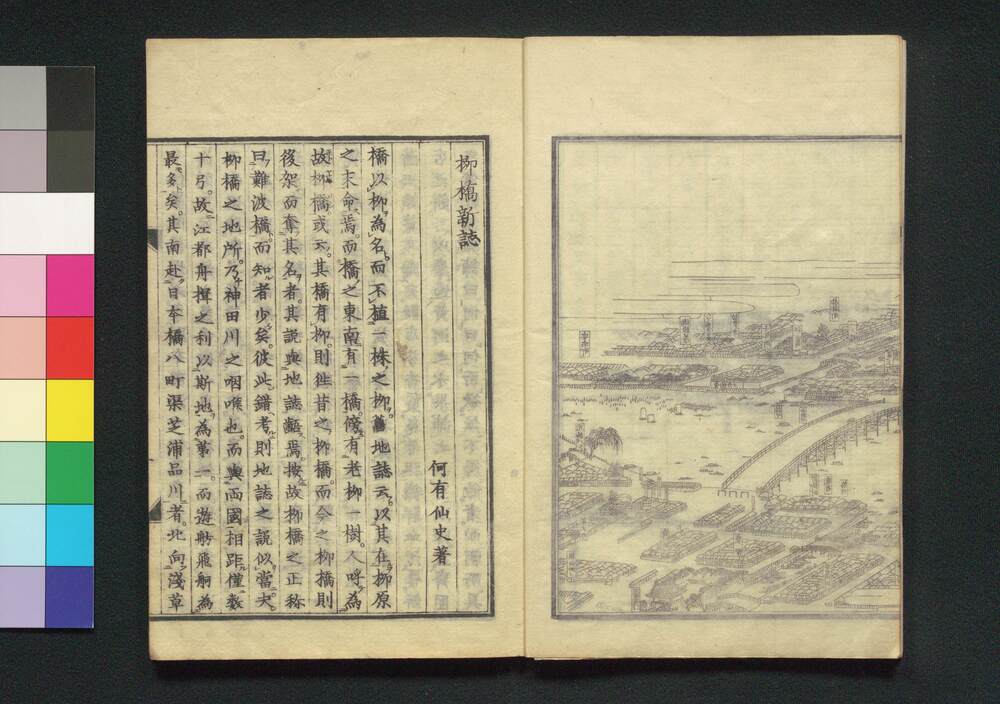 柳橋新誌
何有仙史著
橋以柳為名而不植一株之柳舊地誌云以其在柳原
之末命焉而橋之東南有一橋傍有老柳一樹人呼為
故柳橋或云其橋有柳則徃昔之柳橋而今之柳橋則
後架而奪其名者其説與地誌齟焉按故柳橋之正称
曰難波橋而知者少矣彼此錯考則地誌之説似當夫
柳橋之地所乃神田川之咽喉也而與両國相距僅數
十弓故江都舟楫之利以斯地為第一而遊舫飛舸為
最多矣其南赴日本橋八町渠芝浦品川者北向淺草